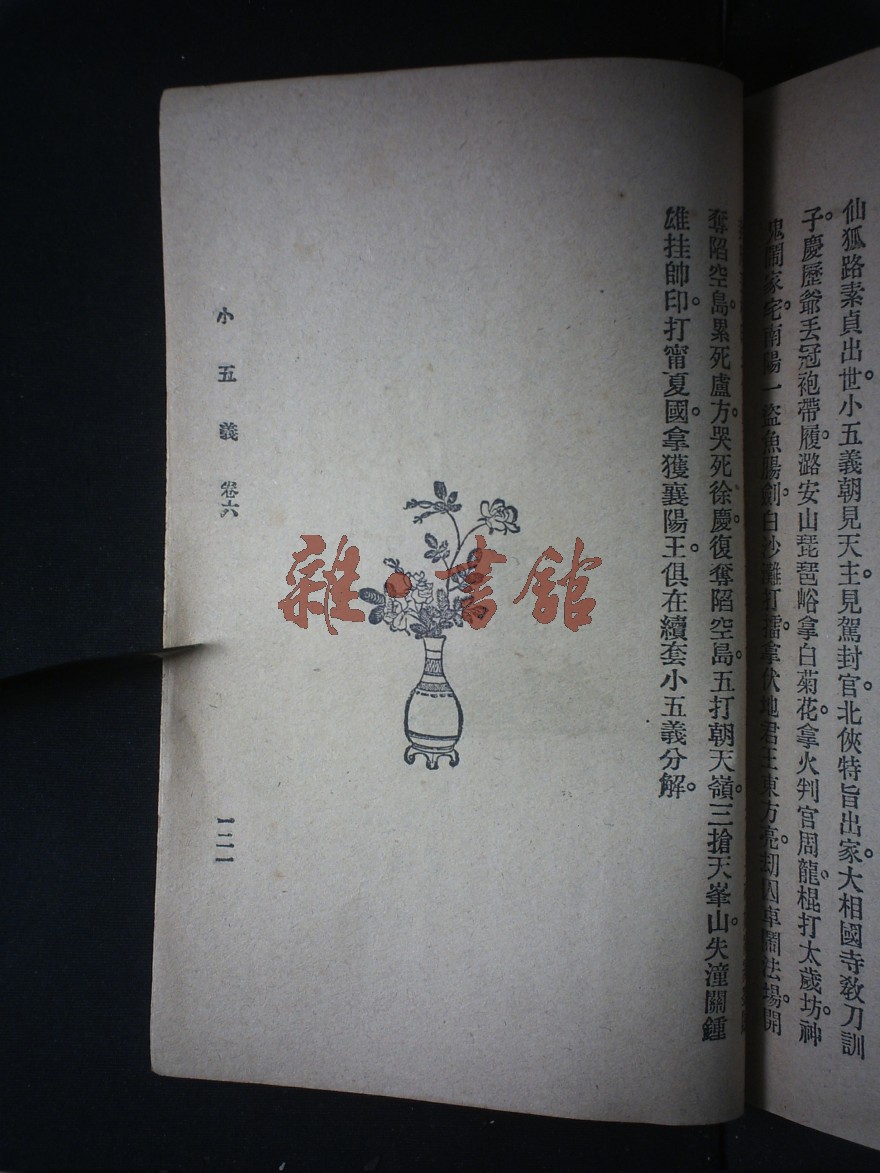 仙狐路素貞出世。小五義朝見天主。見駕封官。北俠特旨出家。大相國寺教刀訓
子。慶歷爺丟冠袍帶履。潞安山琵琶峪拿白菊花。拿火判官周龍。棍打太歲坊。神
鬼鬧家宅。南陽一盜魚腸劍。白沙灘打擂。拿伏地君王東方亮。劫囚車鬧法場。開
奪陷空島。累死盧方。哭死徐慶。復奪陷空島。五打朝天嶺。三搶天峯山。失潼關。鍾
雄挂帥印。打甯夏國。拿獲襄陽王。俱在續套小五義分解。
小五義 卷六
一二一
雜·書館